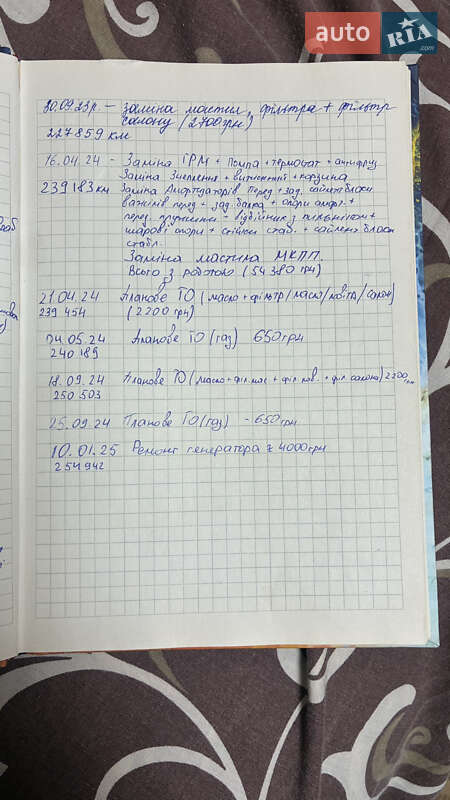 auto RIA .com
30.09.23р. – заміна мастил, фільтра + фільтр
салону (2700грн)
227859 км
16.04.24 - Заміна ГРМ + Помпа + термостат + антифриз
Заміна Зчеплення + витискний + корзина
239183км Заміна Амортизаторів перед + зад. сайлентблоки
важілів перед + зад. балка + опори аморт. +
перед. пружини + відбійник з пильником +
шарові опори + стійки стаб. + сайлент блоки
стабл.
Заміна мастила МКПП.
Всього з роботою (54380 грн)
21.04.24 Планове ТО (масло + фільтр/масло/повітр/салон)
239 454 (2200 грн)
04.05.24 Планове ТО (газ) 650 грн
240 189
18.09.24 Планове ТО (масло + філ. мас + філ. пов. + філ салона) 2200 грн
250 503
25.09.24 Планове ТО (газ) - 650 грн
10.01.25 Ремонт генератора 4000 грн
254942